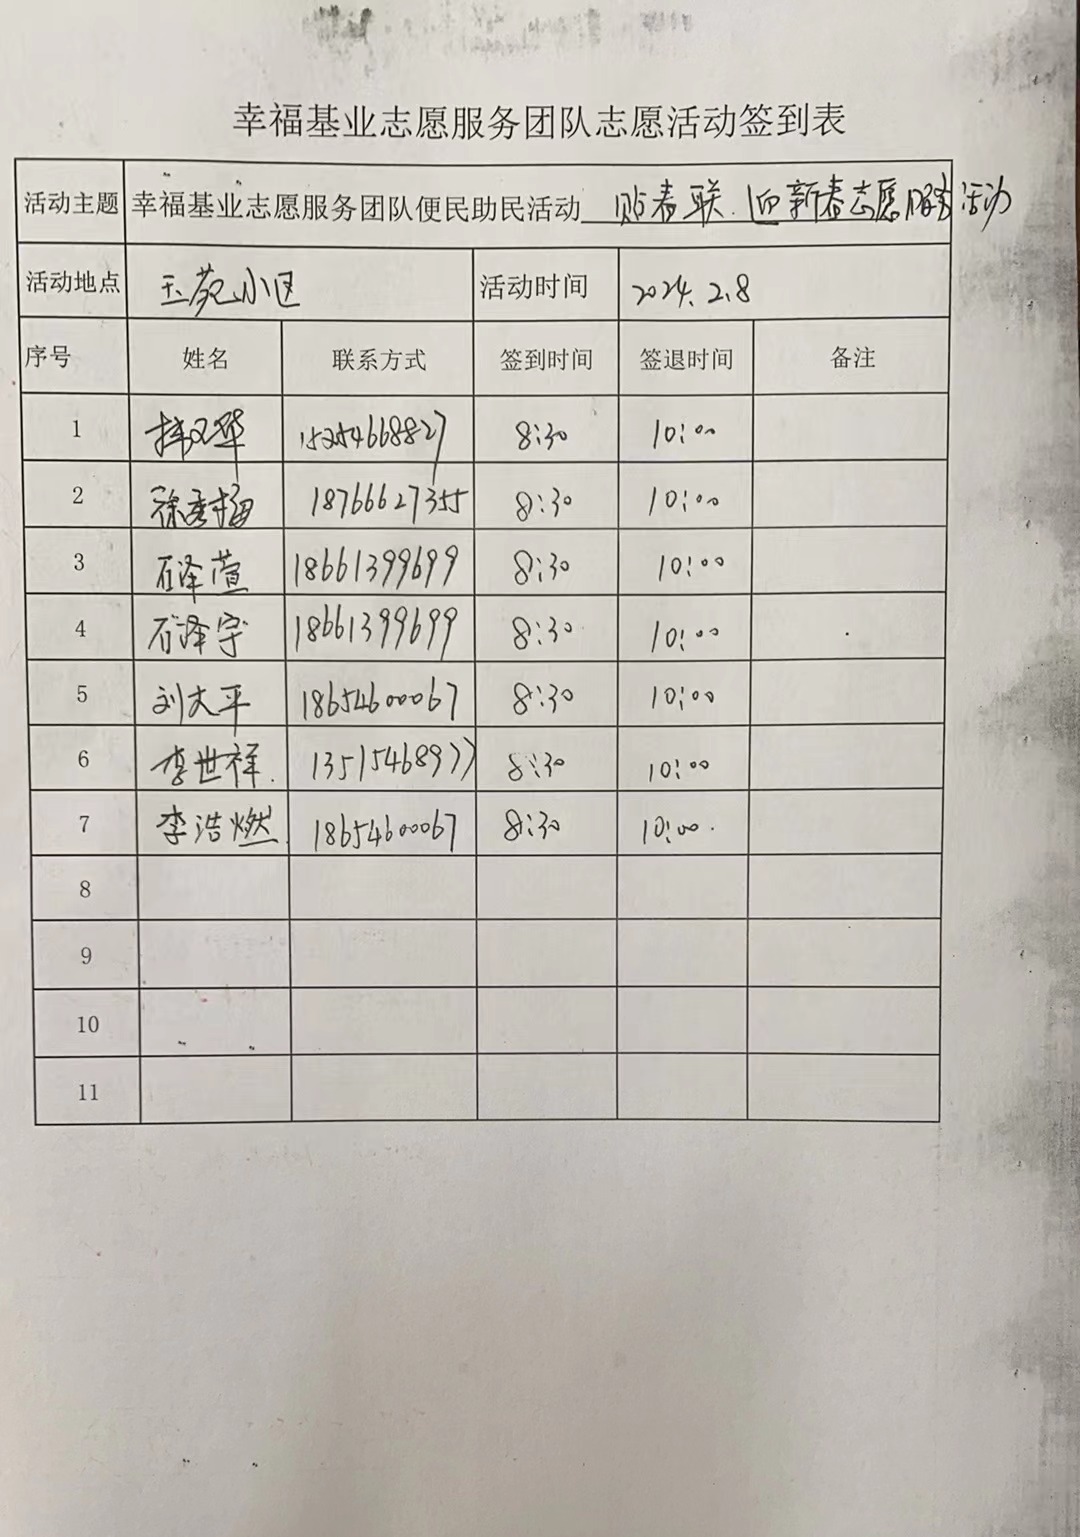 幸福基业志愿服务团队志愿活动签到表
活动主题 幸福基业志愿服务团队便民助民活动 贴春联.迎新春志愿服务活动
活动地点 玉苑小区 活动时间 2024.2.8
序号 姓名 联系方式 签到时间 签退时间 备注
1 15254668827 8:30 10:00
2 徐秀梅 18766627355 8:30 10:00
3 石泽萱 18661399699 8:30 10:00
4 石泽宇 18661399699 8:30 10:00
5 刘大平 18654600067 8:30 10:00
6 李世祥. 13515468977 8:30 10:00
7 李浩燃. 18654600067 8:30 10:00.
8
9
10
11